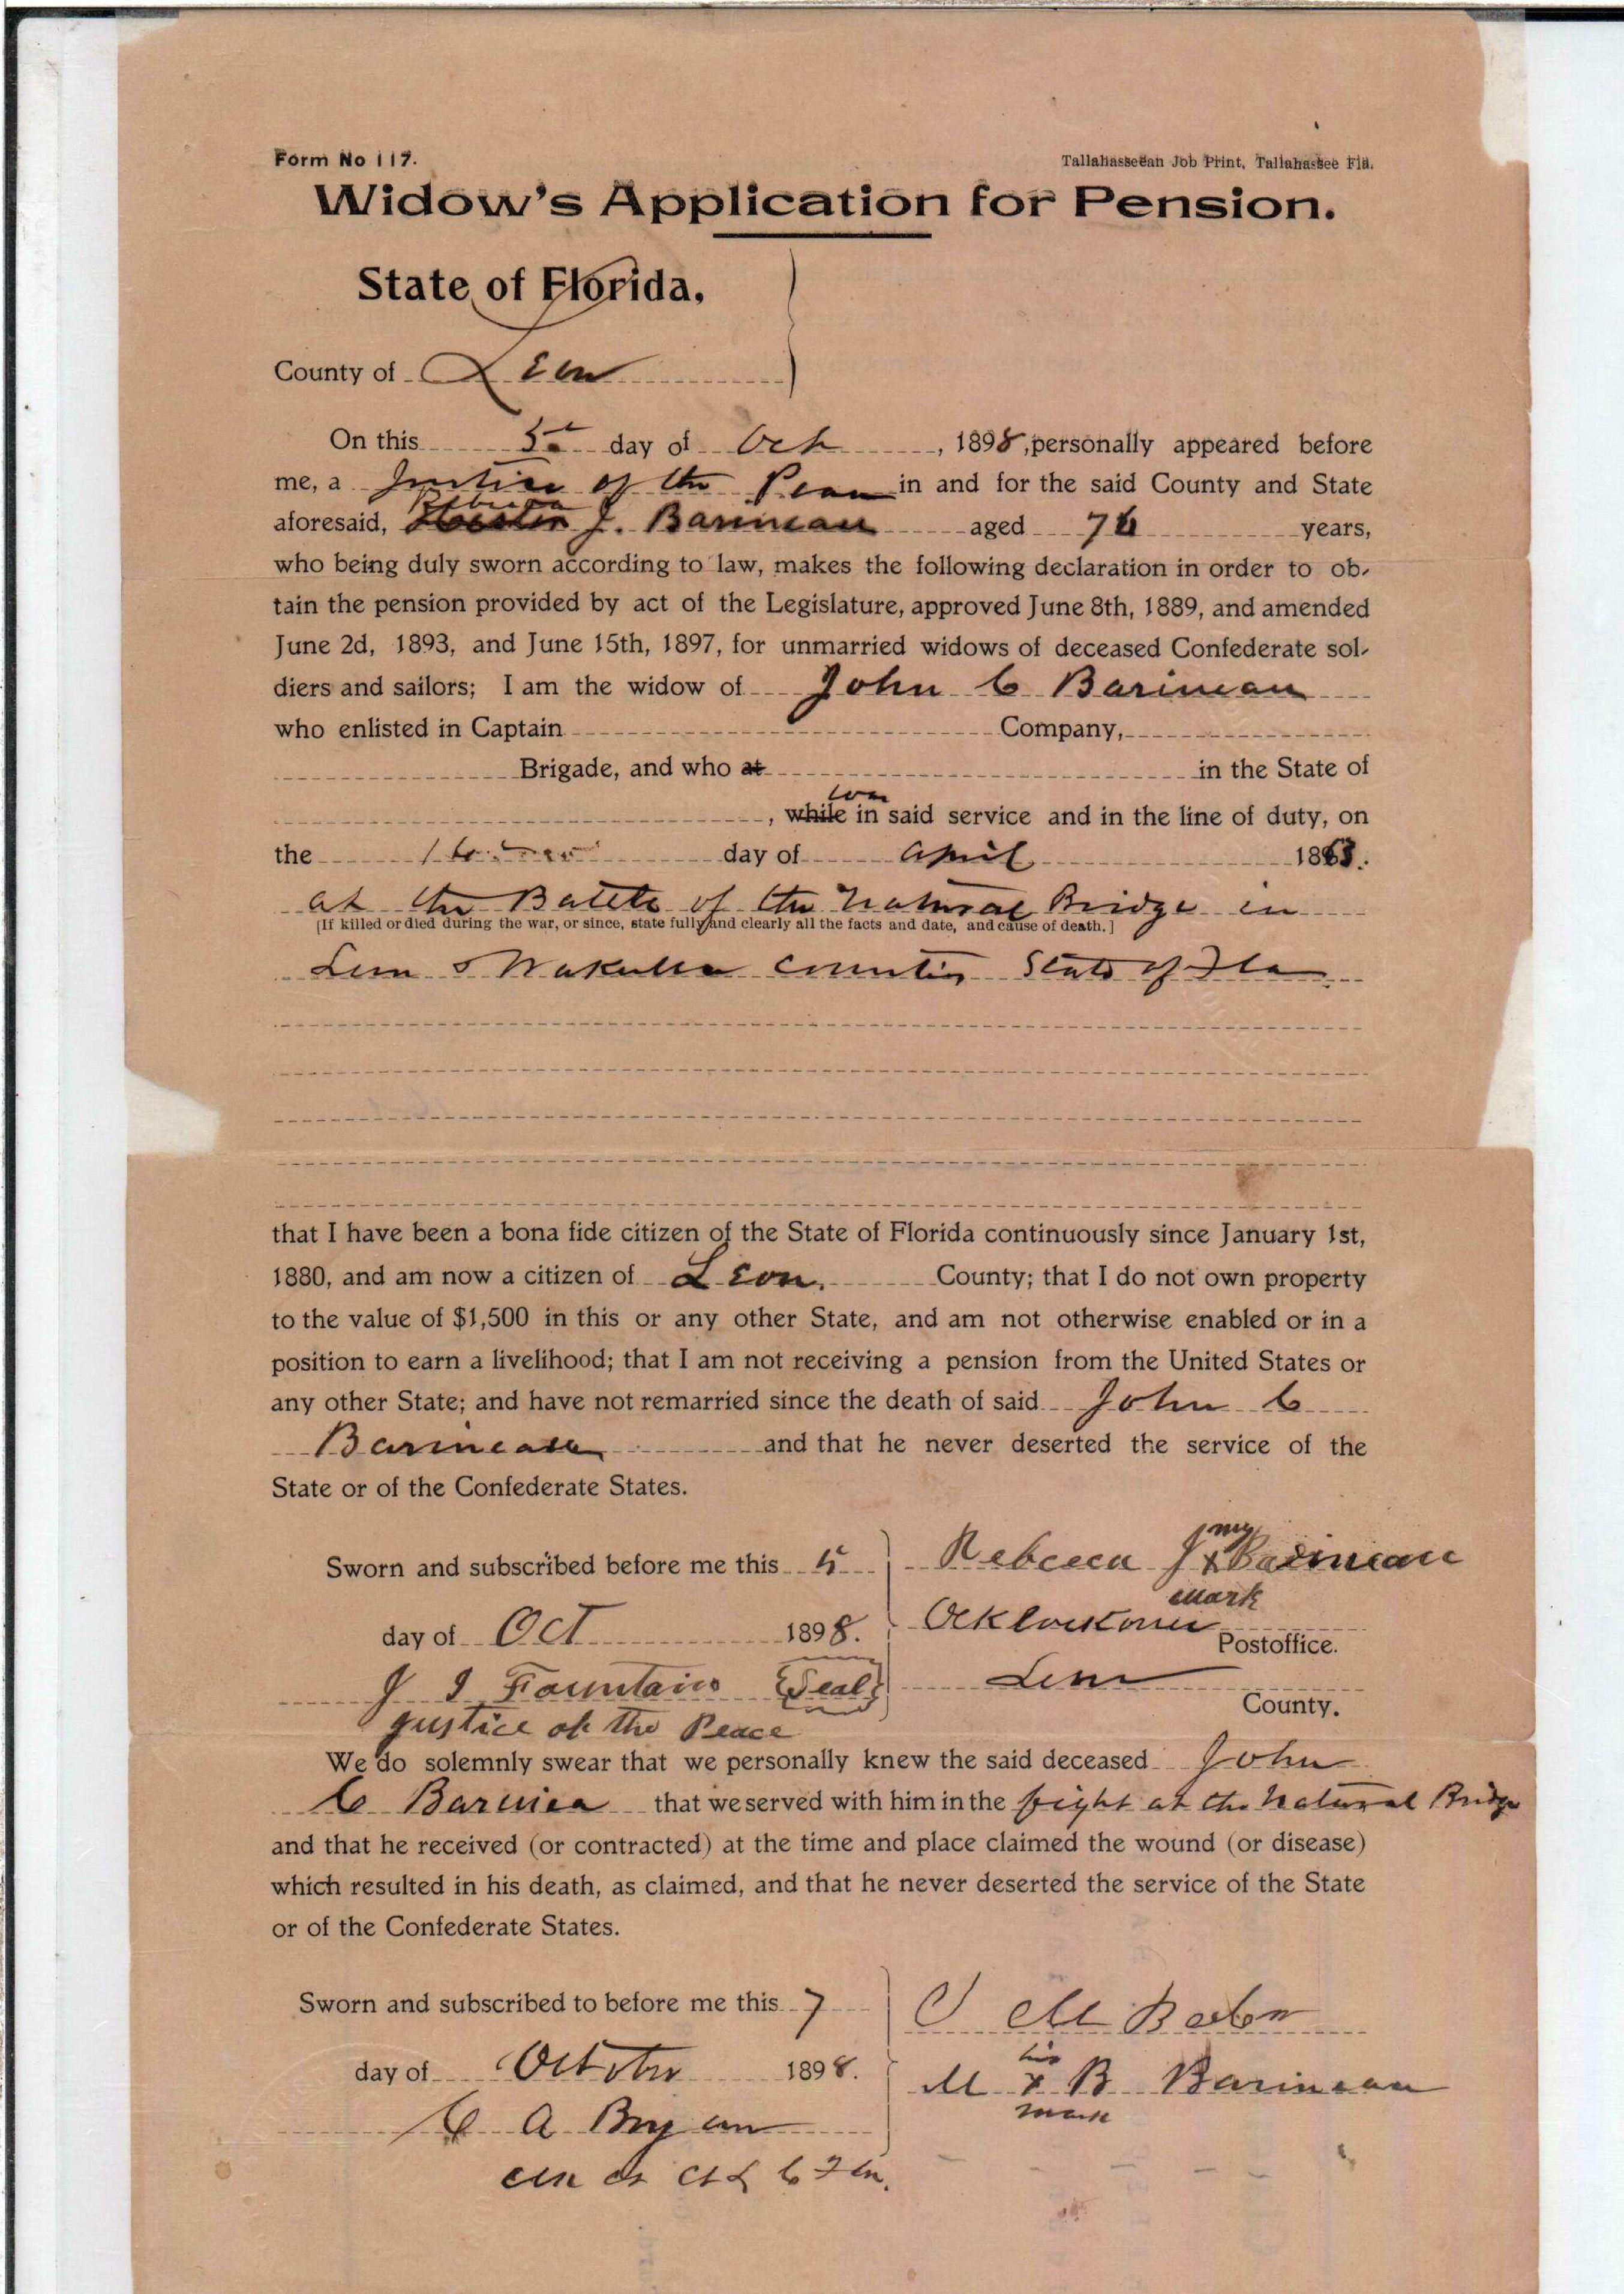 Form No 117.
Tallahasseean Job Print, Tallahassee Fla.
Widow's Application for Pension.
State of Florida,
County of Leon
On this 5th day of Oct, 1898, personally appeared before
me, a Justice of the Peace in and for the said County and State
Rebecca
aforesaid, J. Barineau aged 76 years,
who being duly sworn according to law, makes the following declaration in order to ob-
tain the pension provided by act of the Legislature, approved June 8th, 1889, and amended
June 2d, 1893, and June 15th, 1897, for unmarried widows of deceased Confederate sol-
diers and sailors; I am the widow of John C Barineau
who enlisted in Captain Company,
Brigade, and who at in the State of
was
, while in said service and in the line of duty, on
the day of April 1863.
at the Battle of the Natural Bridge in
[If killed or died during the war, or since, state fully and clearly all the facts and date, and cause of death.]
Leon & Wakulla Counties State of Fla
that I have been a bona fide citizen of the State of Florida continuously since January 1st,
1880, and am now a citizen of Leon. County; that I do not own property
to the value of $1,500 in this or any other State, and am not otherwise enabled or in a
position to earn a livelihood; that I am not receiving a pension from the United States or
any other State; and have not remarried since the death of said John C
Barineau and that he never deserted the service of the
State or of the Confederate States.
Sworn and subscribed before me this 5
day of Oct 1898.
J I Fountain Seal
Justice of the Peace
my
Rebecca J x Barineau
mark
Postoffice.
Leon
County.
We do solemnly swear that we personally knew the said deceased John
C that we served with him in the fight at the Natural Bridge
and that he received (or contracted) at the time and place claimed the wound (or disease)
which resulted in his death, as claimed, and that he never deserted the service of the State
or of the Confederate States.
Sworn and subscribed to before me this 7
day of October 1898.
C A Bryan
his
M x B Barineau
mark